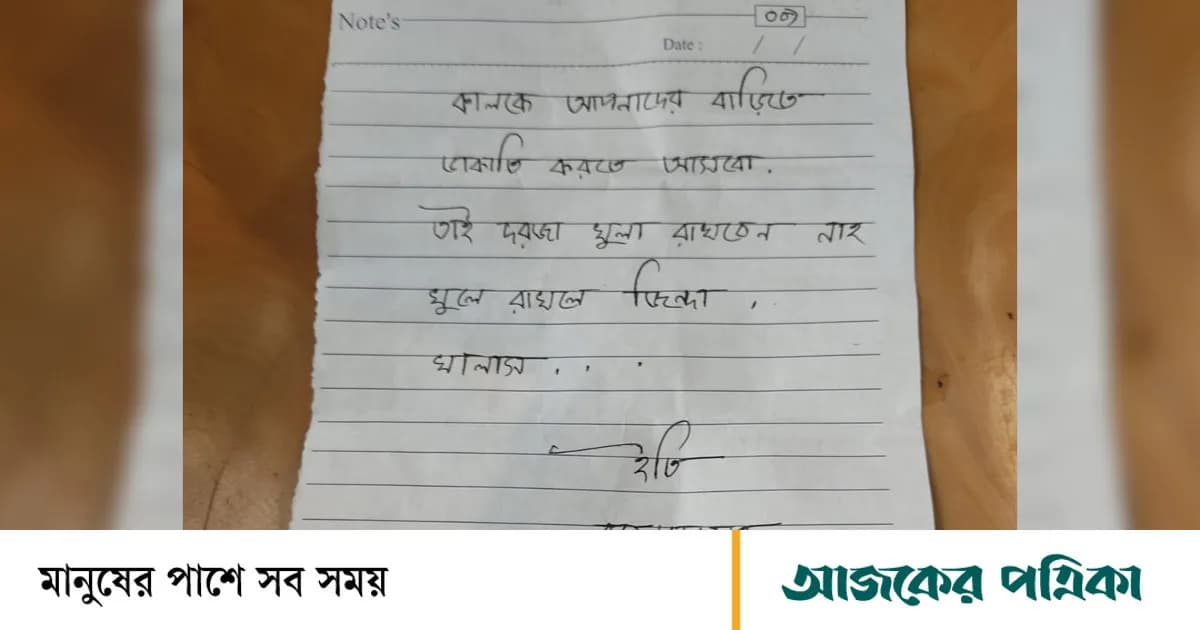 Note's
০১
Date : / /
কালকে আপনাদের বাড়িতে
ডাকাতি করতে আসবো.
তাই দরজা খুলা রাখবেন নাহ
খুলে রাখলে জিন্দা .
খালাস . . .
ইতি
মানুষের পাশে সব সময়
আজকের পত্রিকা